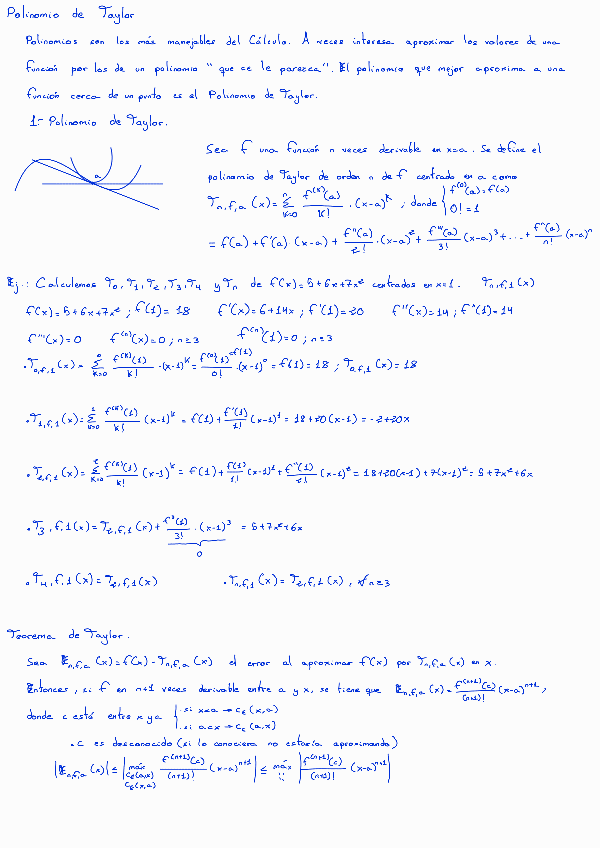 Polinomio de Taylor
Polinomios son los más manejables del Cálculo. A veces interesa aproximar los valores de una
función por los de un polinomio "que se le parezca". El polinomio que mejor aproxima a una
función cerca de un punto es el Polinomio de Taylor.
1.- Polinomio de Taylor.
a
Sea f una función n veces derivable en x=a. Se define el
polinomio de Taylor de orden n de f centrado en a como
T_{n,f,a}(x) = Σ_{k=0}^{n} f^{(k)}(a)/k! · (x-a)^k ; donde { f^{(0)}(a) = f(a) ; 0! = 1
= f(a) + f'(a)·(x-a) + f''(a)/2! ·(x-a)^2 + f'''(a)/3! (x-a)^3 + ... + f^n(a)/n! (x-a)^n
Ej.: Calculemos T_0, T_1, T_2, T_3, T_4 y T_n de f(x)=5+6x+7x^2 centrados en x=1. T_{n,f,1}(x)
f(x)=5+6x+7x^2 ; f(1)=18 f'(x)=6+14x ; f'(1)=20 f''(x)=14 ; f''(1)=14
f'''(x)=0 f^{(n)}(x)=0 ; n≥3 f^{(n)}(1)=0 ; n≥3
· T_{0,f,1}(x) = Σ_{k=0}^{0} f^{(k)}(1)/k! ·(x-1)^k = f^{(0)}(1)/0! ·(x-1)^0 = f(1) = 18 ; T_{0,f,1}(x)=18
· T_{1,f,1}(x) = Σ_{k=0}^{1} f^{(k)}(1)/k! (x-1)^k = f(1) + f'(1)/1! (x-1)^1 = 18+20(x-1) = -2+20x
· T_{2,f,1}(x) = Σ_{k=0}^{2} f^{(k)}(1)/k! (x-1)^k = f(1) + f'(1)/1! (x-1)^1 + f''(1)/2! (x-1)^2 = 18+20(x-1)+7(x-1)^2 = 5+7x^2+6x
· T_{3,f,1}(x) = T_{2,f,1}(x) + f^3(1)/3! ·(x-1)^3 = 5+7x^2+6x
0
· T_{4,f,1}(x) = T_{2,f,1}(x) · T_{n,f,1}(x) = T_{2,f,1}(x), ∀n≥3
Teorema de Taylor.
Sea E_{n,f,a}(x) = f(x) - T_{n,f,a}(x) el error al aproximar f(x) por T_{n,f,a}(x) en x.
Entonces, si f en n+1 veces derivable entre a y x, se tiene que E_{n,f,a}(x) = f^{(n+1)}(c)/(n+1)! (x-a)^{n+1},
donde c está entre x y a { · si x<a → c∈(x,a)
· si a<x → c∈(a,x)
· c es desconocido (si lo conociera no estaría aproximando)
|E_{n,f,a}(x)| ≤ | máx_{c∈(a,x) c∈(x,a)} f^{(n+1)}(c)/(n+1)! (x-a)^{n+1} | ≤ máx | f^{(n+1)}(c)/(n+1)! (x-a)^{n+1} |